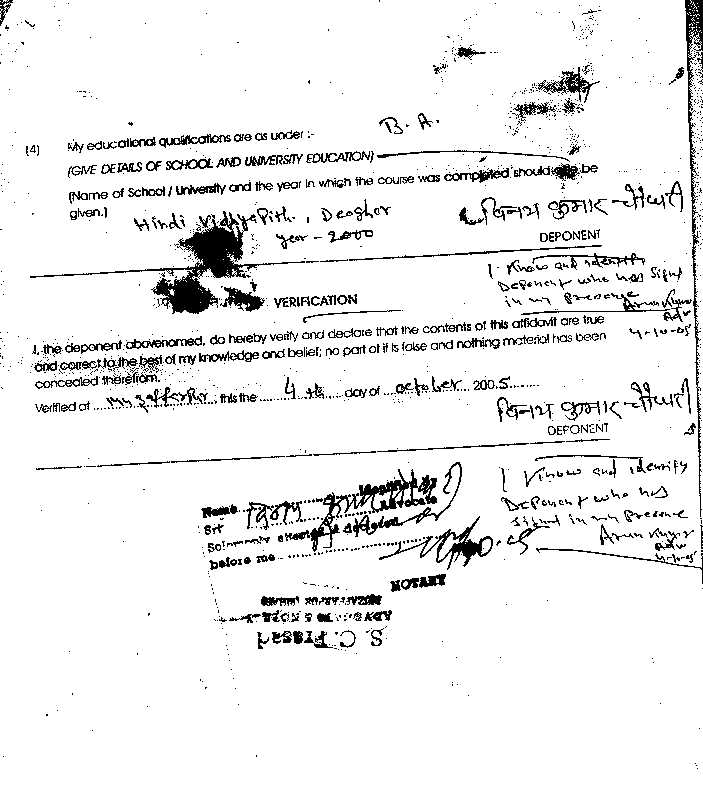 (4) My educational qualifications are as under :- B. A.
(GIVE DETAILS OF SCHOOL AND UNIVERSITY EDUCATION)
(Name of School / University and the year in which the course was completed should be
given.) Hindi Vidhyapith, Deoghar
year - 2000
विनय कुमार चौधरी
DEPONENT
I know and identify
Deponent who has Signd
in my Presence
Arun Kumar
Adv
4-10-05
VERIFICATION
I, the deponent abovenamed, do hereby verify and declare that the contents of this affidavit are true
and correct to the best of my knowledge and belief; no part of it is false and nothing material has been
concealed therefrom.
Verified at Muzaffarpur this the 4 th day of october 2005
विनय कुमार चौधरी
DEPONENT
I know and identify
Deponent who has
Signd in my Presence
Arun Kumar
Adv
4-10-05
Name Identified by
Sri Advocate
Solemnly
before me
NOTARY
S. C. Prasad